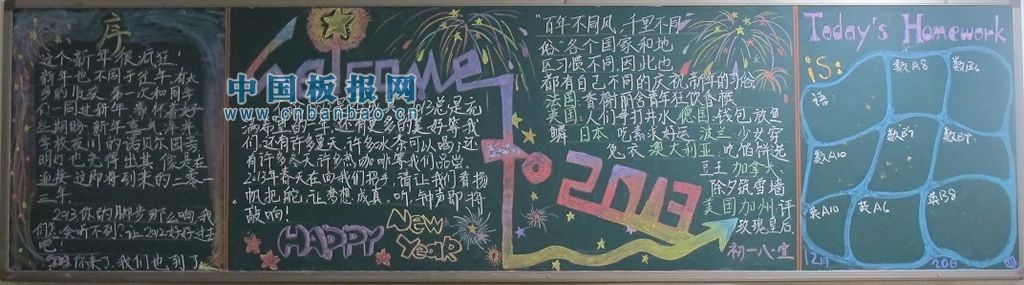 序
这个新年很疯狂!
新年也不同于往年,有太
多的收获,第一次和同学
们一同过新年,带怀着好
期盼,新年喜气洋洋
学校友川的诺贝尔园景
明日也
迎接这即将到来的二零一
三年。
2013你的脚步那么响,我
们会听不到?让2012好好过去
吧!
2013你来了,我们也到了
Welcome
中国板报网
www.cnbanbao.cn
2013总是充
满希望的一年,还有更多的美好等我
们,还有许多夏天,许多水茶可以喝;还
有许多冬天,许多热咖啡等我们品尝。
2013年春天在向我们招手,请让我们看扬
帆把舵,让梦想成真。听,钟声即将
敲响!
HAPPY
NEW
YEAR
To 2013
"百年不同风,千里不同
俗"各个国家和地
区习惯不同,因此也
都有自己不同的庆祝新年的习俗
法国:香榭丽舍青年狂饮香槟
英国:人们争打井水 德国:钱包放鱼
鳞 日本:吃素求好运 波兰:少女穿
兔衣 澳大利亚:吃馅饼选
豆王 加拿大:
除夕筑雪墙
美国加州:评
玫瑰皇后
初一八·宣
Today's Homework
is:
语
数A8
数B6
数A10
数B7
数B7
英A10
英A6
英B8
12月
20日
四